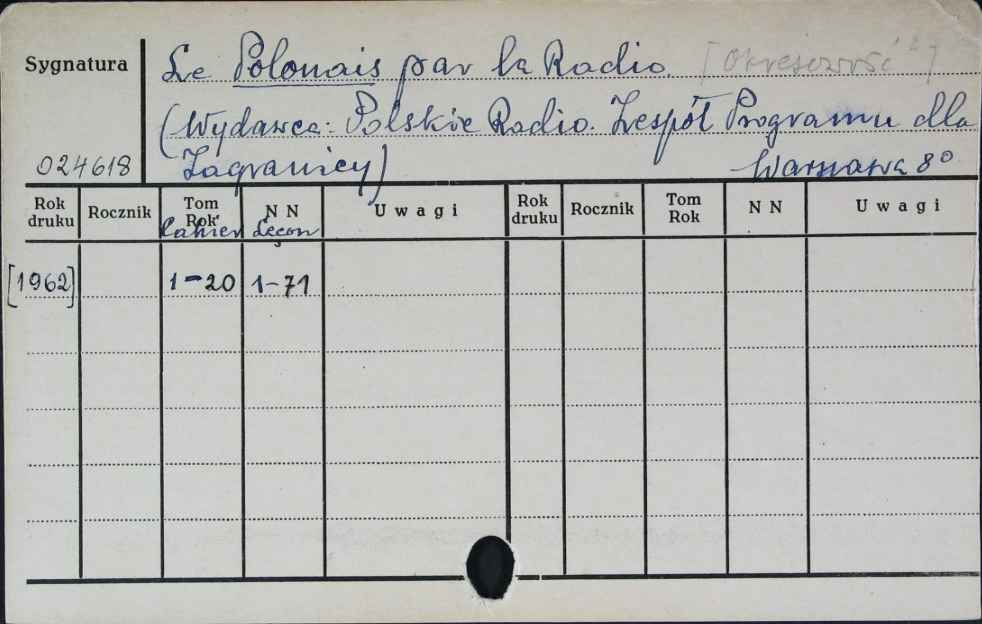 Sygnatura
Le Polonais par la Radio.
(Wydawca: Polskie Radio. Zespół Programu dla
Zagranicy)
Warszawa 8°
024618
Rok druku Rocznik Tom Rok N N Uwagi Rok druku Rocznik Tom Rok N N Uwagi
Cahier Leçon
[1962] 1-20 1-71